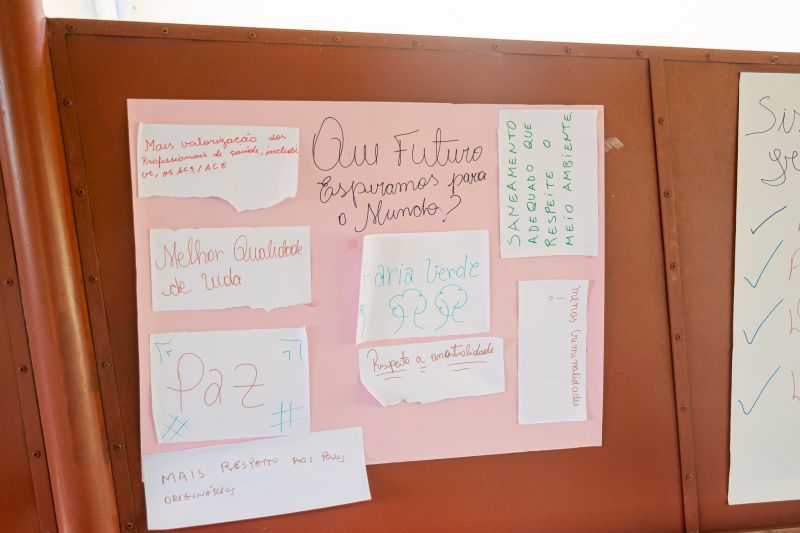 Que Futuro
Esperamos para
o Mundo?
Mais valorização dos
Profissionais de saúde, inclusi
ve, os ACS/ACE
Melhor Qualidade
de Vida.
Paz
MAIS RESPEITO AOS POVOS
ORIGINÁRIOS
aria Verde
Respeito a ancestralidade
SANEAMENTO
ADEQUADO QUE
RESPEITE O
MEIO AMBIENTE.
menos